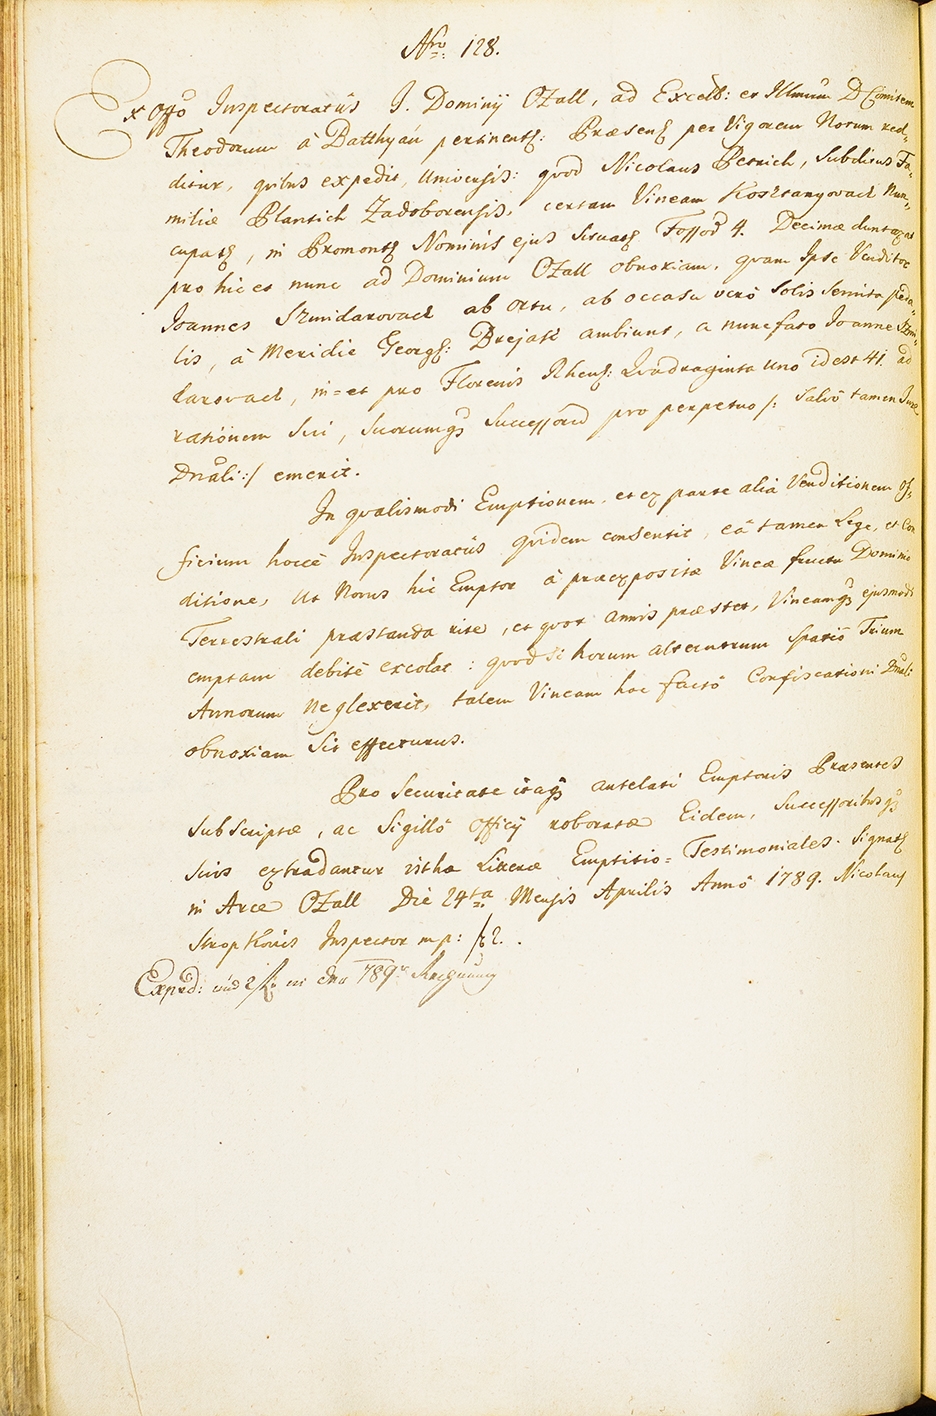 Nro: 128.
Ex Offo Inspectoratûs I. Dominÿ OZall, ad Excell: et Illmum D Comitem
Theodorum â Batthyán pertinents: Præsens per Vigorem Notum red=
ditur, quibus expedit, Universis: quod Nicolaus Petrich, Subditus Fa=
miliæ Plantich Zadoborensis, certam Vineam Kosztanyovach Nun=
cupats, in Promonts Nominis ejus Situats Fossod 4. Decimæ duntaxat
pro hic et nunc ad Dominium OZall obnoxiam, quam Ipse Venditor
Joannes Szmidarovach ab ortu, ab occasu verò Solis Semita peda=
lis, â Meridie Georgs: Brejak ambiunt, a nunefato Joanne Szmi=
darovach, in= et pro Florenis Rhens: Quadraginta uno id est 41. ad
rationem Sui, Suorumqs Successorũ pro perpetuo /: Salvô tamen Jure
Dnali :/ emerit.
In qualismodi Emptionem, et ex parte alia Venditionem Of=
ficium hocce Inspectoratûs quidem consentit, eâ tamen Lege, et Con
ditione, Ut Novus hic Emptor â præexpositæ Vineæ fructu Dominio
Terrestrali præstanda rite, et quot annis præstet, Vineamqs ejusmodi
emptam debitè excolat: quod si horum alterutrum Spatiô Trium
Annorum neglexerit, talem Vineam hoc factô Confiscationi Dnali
obnoxiam Sit effecturus.
Pro Securitate itaqs antelati Emptoris Præsentes
Subscriptæ, ac Sigillô Officÿ roboratæ Eidem, Successoribusqs
Suis extradantur isthæ Litteræ Emptitio= Testimoniales. Signats
in Arce OZall Die 24ta Mensis Aprilis Annô 1789. Nicolaus
Stropkovics Inspector mp:
Exped: und in der 789r Rechnung